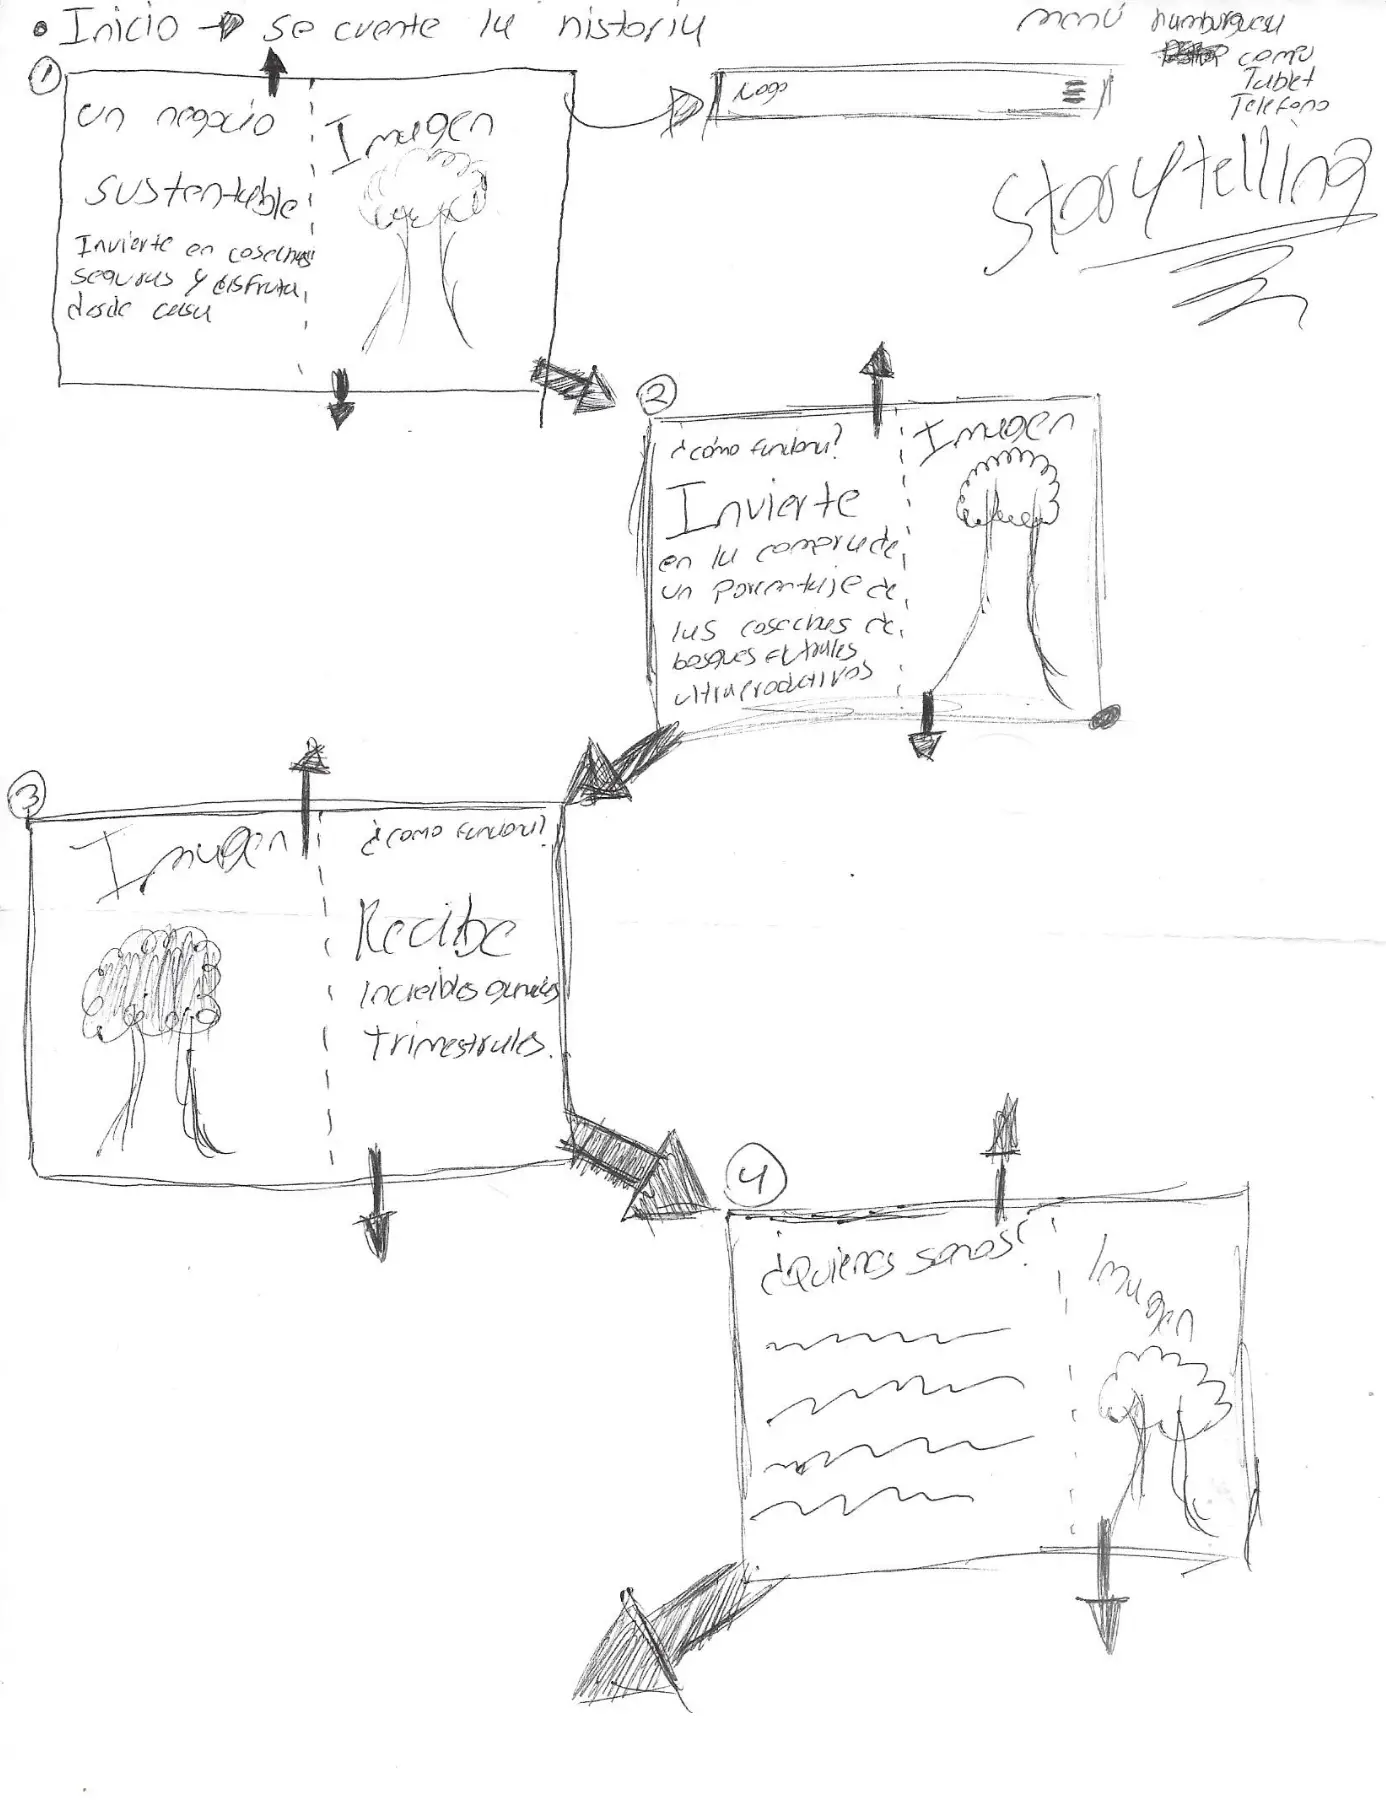 • Inicio → se cuente la historia
menú hamburguesa
compu
Tablet
Teléfono
Storytelling
1
un negocio
sustentable
Invierte en cosechas
seguras y disfruta
desde casa
Imagen
Logo
2
¿cómo funciona?
Invierte
en la compra de
un porcentaje de
las cosechas de
bosques
ultraproductivos
Imagen
3
Imagen
¿como funciona?
Recibe
increibles
trimestrales.
4
¿Quienes somos?
Imagen